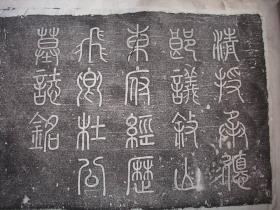 清授承德
郎議敘山
東府經歷
飛卿杜公
墓誌銘